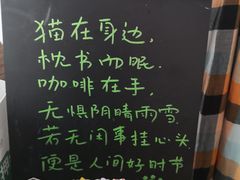 猫在身边,
枕书而眠.
咖啡在手,
无惧阴晴雨雪.
若无闲事挂心头
便是人间好时节